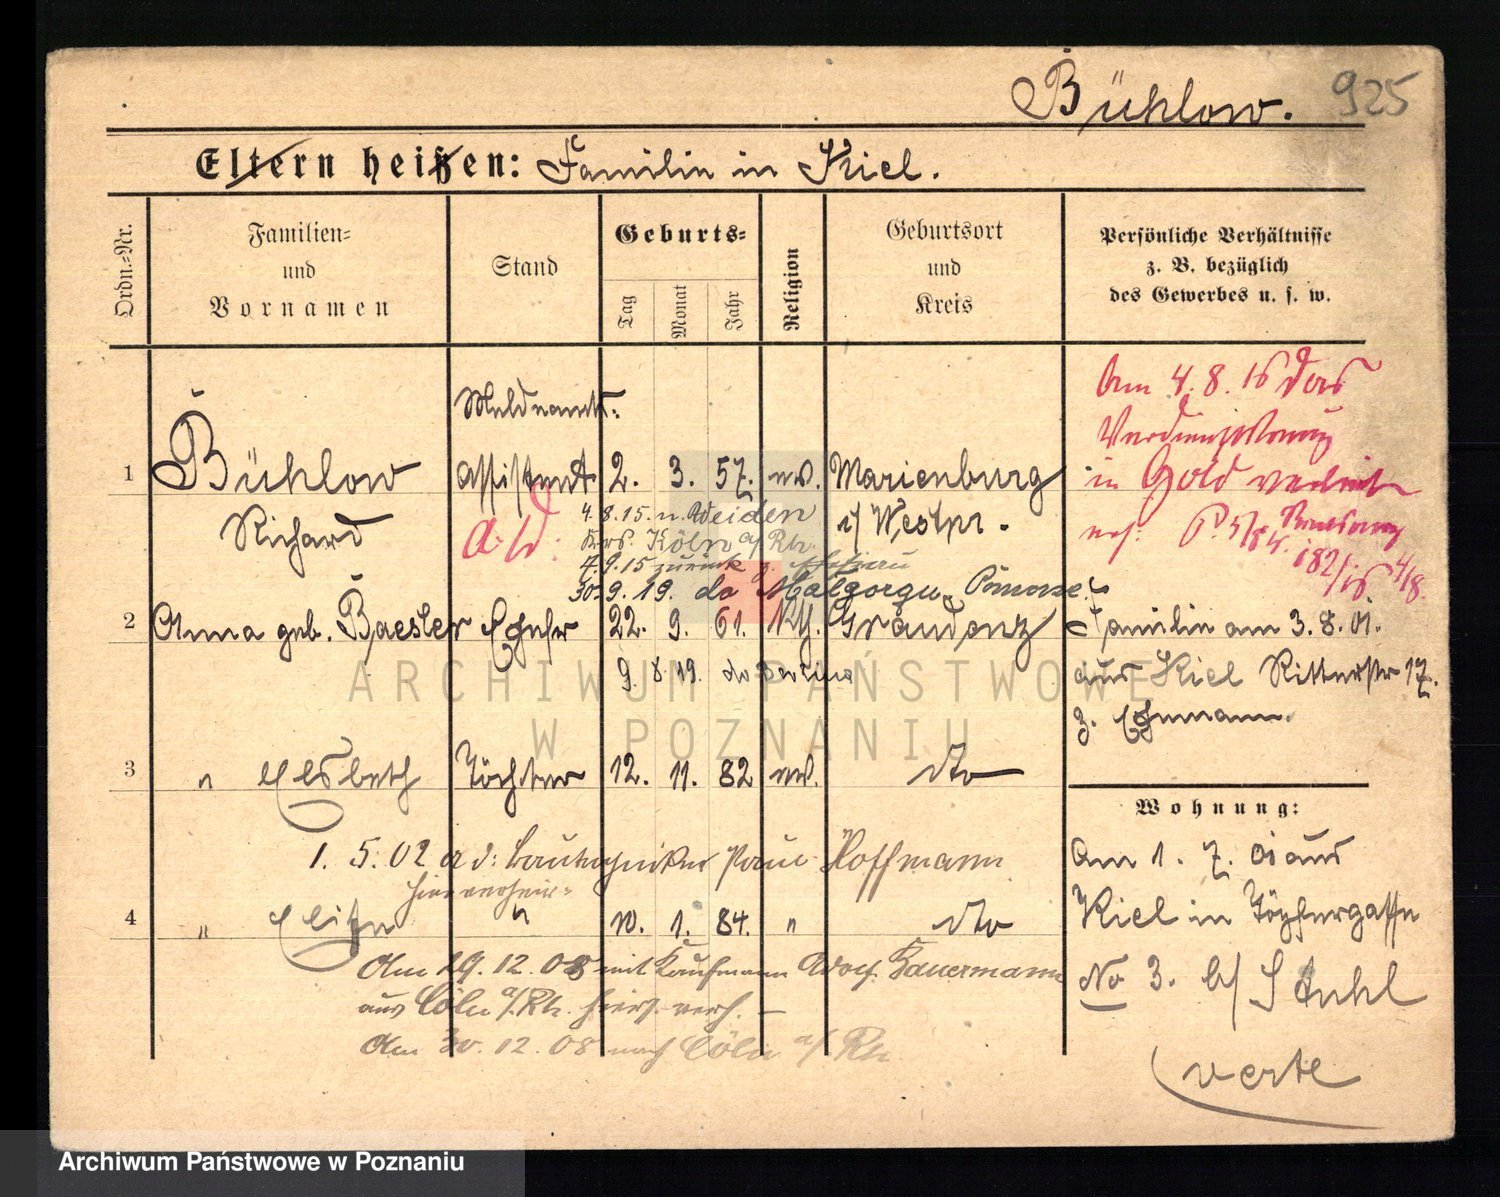 Bühlow. 925
Eltern heißen: Familie in Kiel.
Ordn.-Nr.
Familien-
und
Vornamen
Stand
Geburts-
Tag
Monat
Jahr
Religion
Geburtsort
und
Kreis
Persönliche Verhältnisse
z. B. bezüglich
des Gewerbes u. s. w.
Meldeamts-
1 Bühlow assistent 2. 3. 57. ev. Marienburg
Richard a. D. i/ Westpr.
4.8.15. n. Weiden
Krs. Köln a/Rh.
4.9.15 zurück
30.9.19. do Malgorzu
Am 4. 8. 16 das
in Gold verlieh
182/16 4/8.
2 Anna geb. Baesler Ehefr 22. 9. 61. kth. Graudenz
9. 8 19. do Berlin
Familie am 3. 8. 01.
aus Kiel Ritterstr 17.
z. Ehemann.
3 " Elsbeth Tochter 12. 11. 82 ev. dto
1. 5. 02 a d: Bautechniker Paul Hoffmann
hier verheir-
4 " Elise " 10. 1. 84. " dto
Am 29. 12. 08 mit Kaufmann Adolf Bauermann
aus Cöln a/Rh. hiers. verh. –
Am 30. 12. 08 nach Cöln a/ Rh
Wohnung:
Am 1. 7. 01 aus
Kiel in Töpfergasse
No 3. b/ Stuhl
verte
ARCHIWUM PAŃSTWOWE
W POZNANIU
Archiwum Państwowe w Poznaniu